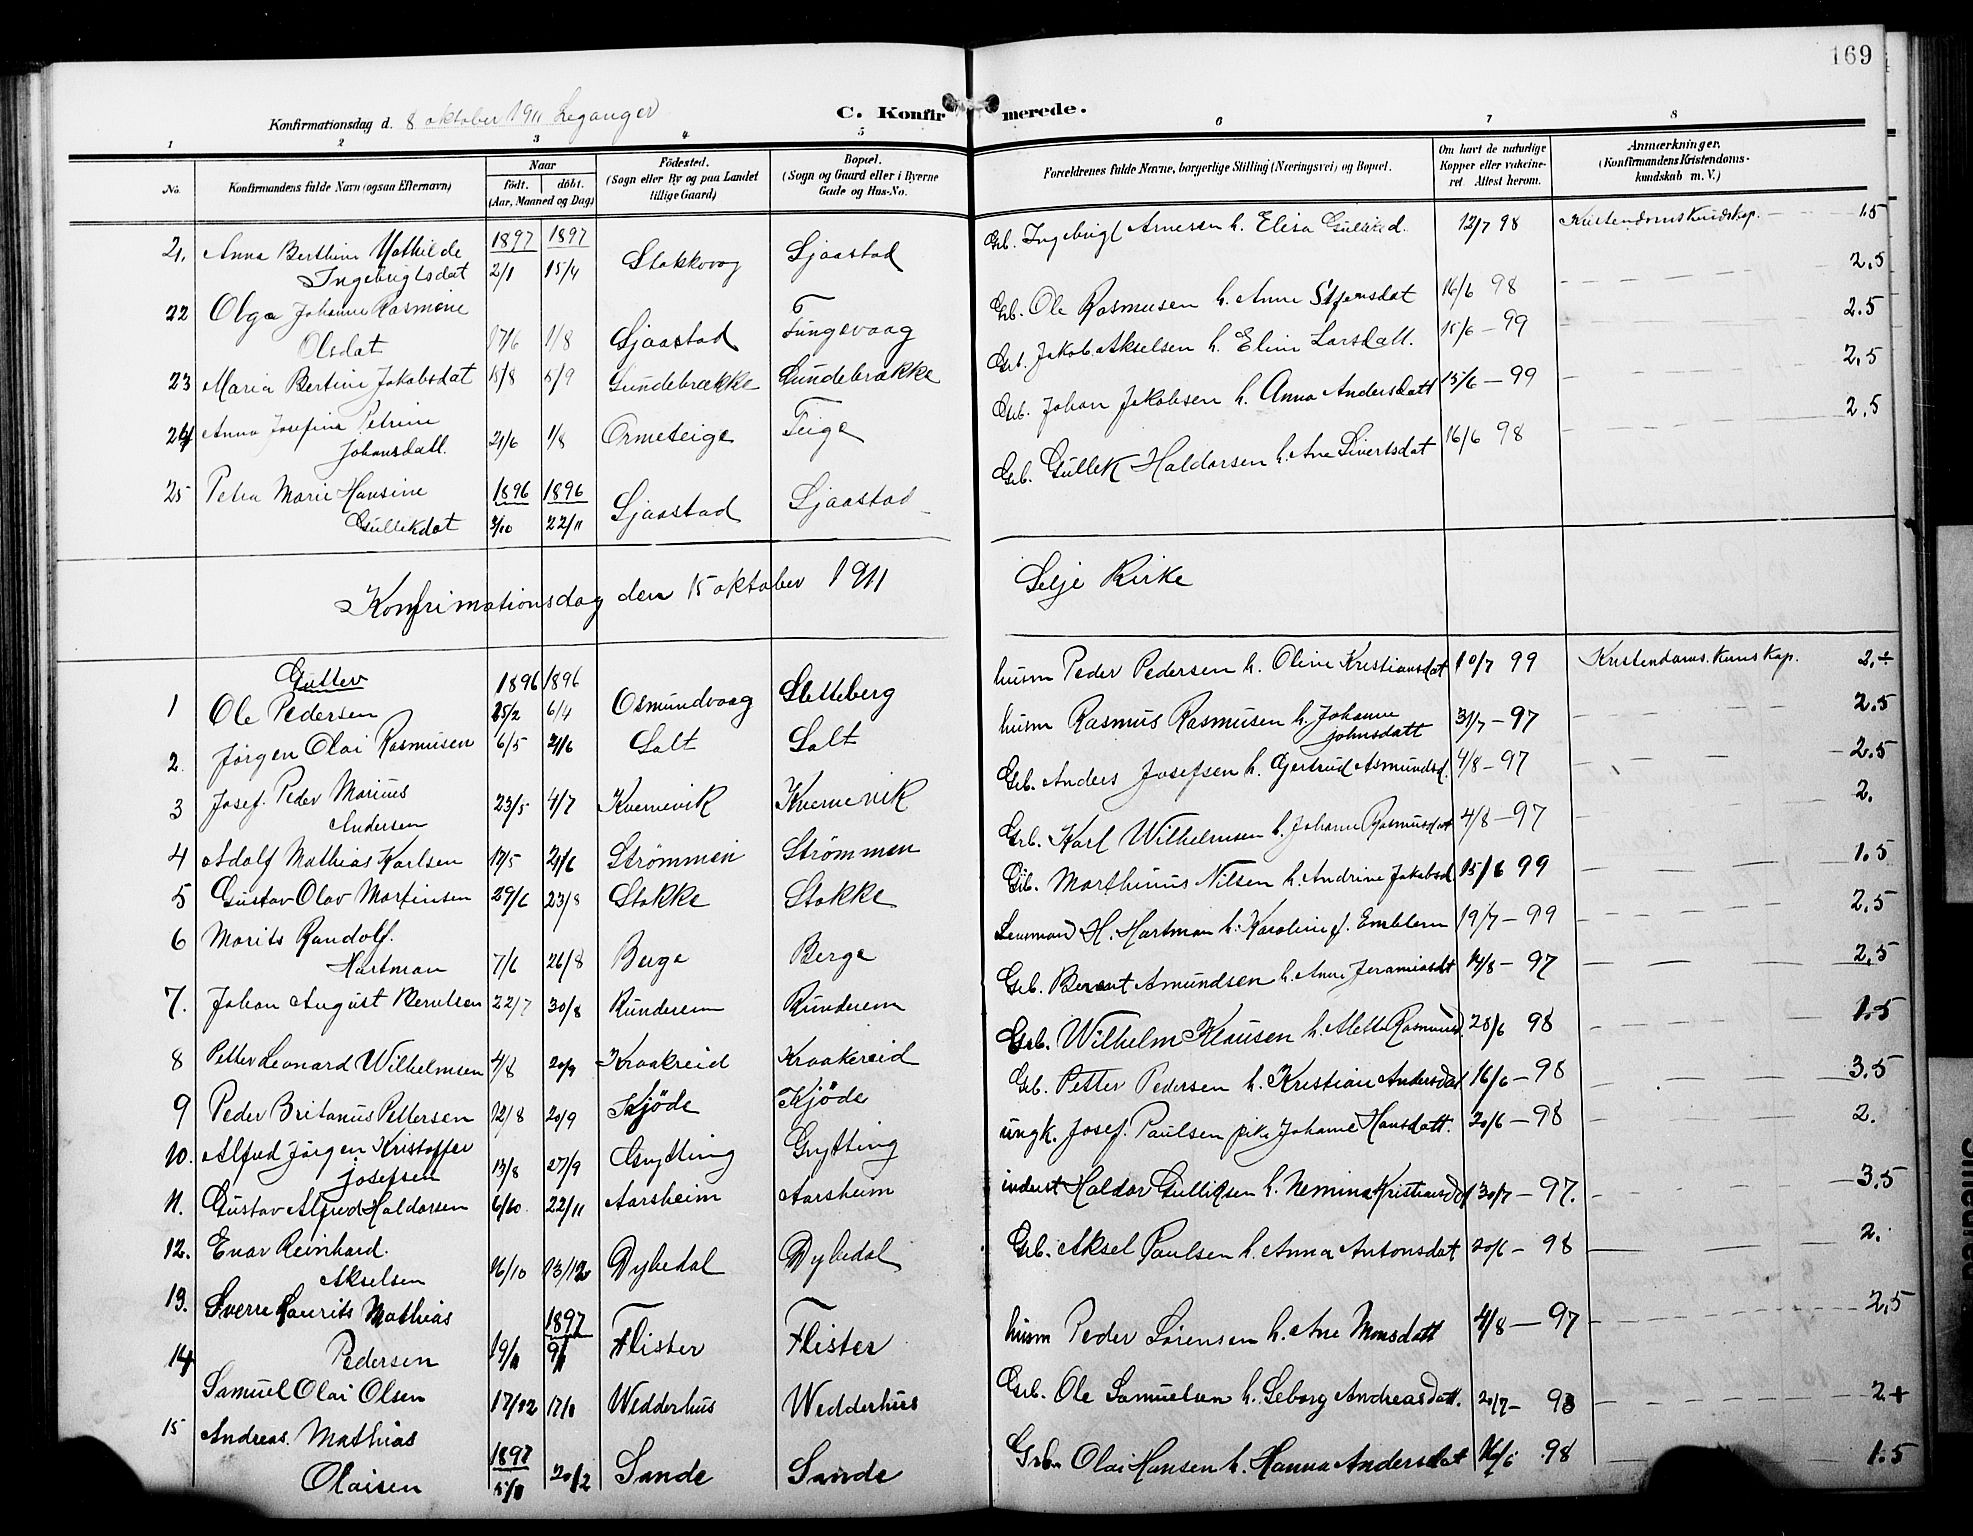 169
Konfirmationsdag d. 8 oktober 1911 Leganger
C. Konfirmerede.
1 2 3 4 5 6 7 8
No.
Konfirmandens fulde Navn (ogsaa Efternavn)
Naar
födt. döbt.
(Aar, Maaned og Dag)
Födested.
(Sogn eller By og paa Landet
tillige Gaard)
Bopæl.
(Sogn og Gaard eller i Byerne
Gade og Hus-No.
Forældrenes fulde Navne, borgerlige Stilling (Næringsvei) og Bopæl.
Om havt de naturlige
Kopper eller vakcine-
ret Attest herom.
Anmærkninger.
(Konfirmandens Kristendoms-
kundskab m. V.)
21. Anna Berthine Mathilde 1897 1897 Grb. Ingebrigt Arnesen h. Elisa 12/7 98 Kristendomskundskap. 1.5
Ingebrigtsdat 2/1 15/4 Stokkevag Sjaastad
22 Olga Johanne Rasmine Grb. Ole Rasmusen h. Anne 16/6 98 2.5
Olsdat 17/6 1/8 Sjaastad Tungevaag
23 Maria Bertine Jakobsdat 11/8 5/9 Gundebrække Gundebrække Grb. Jakob Akselsen h. Eline Larsdatt. 15/6 - 99 2.5
24 Anna Josefine Petrine Grb. Johan Jakobsen h. Anna Andersdatt 15/6 - 99 2.5
Johansdatt. 21/6 1/8 Ormeteige Teige
25 Petra Marie Hansine 1896 1896 Grb. Gullik Haldorsen h. Ane Sivertsdat 16/6 98 2.5
Gullikdat 3/10 22/11 Sjaastad Sjaastad
Konfirmationsdag den 15 oktober 1911 Selje Kirke
Gutter 1896 1896
1 Ole Pedersen 25/2 6/4 Osmundvaag Sletteberg husm Peder Pedersen h. Oline Kristiansdat 10/7 99 Kristendoms.kunskap. 2.÷
2. Jørgen Olai Rasmusen 6/5 21/6 Salt Salt husm Rasmus Rasmusen h. Johanne 31/7 - 97 2.5
Johnsdatt
3 Josef. Peder Marius 23/5 4/7 Kvernevik Kvernevik Grb. Anders Josefsen h. Gjertrud Asmundsd. 4/8 - 97 2.5
Andersen
4 Adolf Mathias Karlsen 17/5 21/6 Strömmen Strömmen Grb. Karl Wilhelmsen h. Johanne Rasmusdat 4/8 - 97 2.
5 Gustav Olav Martinsen 29/6 23/8 Stokke Stokke Grb. Marthinus Nilsen h. Andrine Jakobsd. 15/6 99 1.5
6 Morits Randolf. Lensmand H. Hartman h. Karoline f. Emblem 19/7 - 99 2.5
Hartman 7/6 26/8 Berge Berge
7. Johan August Berntsen 22/7 30/8 Runderem Runderem Grb. Berent Amundsen h. Anne Jeramiasdt 14/8 - 97 2.5
8 Petter Leonard Wilhelmsen 4/8 20/9 Kraakreid Kraakereid Grb. Wilhelm Klausen h. Mette Rasmusd. 28/6 98 1.5
9 Peder Britanus Pettersen 12/8 20/9 Kjöde Kjöde Grb. Petter Pedersen h. Kristian Andersdat 16/6 - 98 3.5
10. Alfred Jørgen Kristoffer ungk. Josef. Paulsen pike Johanne Hansdatt. 20/6 - 98 2.
Josefsen 13/8 27/9 Grytting Grytting
11. Gustav Alfred Haldorsen 6/10 22/11 Aarsheim Aarsheim inderst Haldor Gulliksen h. Nemina Kristiansdat 30/7 - 97. 3.5
12. Enar Reinhard. Grb. Aksel Paulsen h. Anna Antonsdat 20/6 - 98 2.
Akselsen 16/10 13/12 Dybedal Dybedal
13. Sverre Laurits Mathias 1897 husm Peder Sörensen h. Ane Monsdatt 4/8 - 97 2.5
Pedersen 19/11 9/1 Flister Flister
14 Samuel Olai Olsen 17/12 17/1 Wedderhus Wedderhus Grb. Ole Samuelsen h. Seborg Andreasdatt. 20/7 - 98 2+
15 Andreas. Mathias 1897 Grb. Olai Hansen h. Hanna Andersdat 16/6 .98 1.5
Olaisen 5/1 20/2 Sande Sande